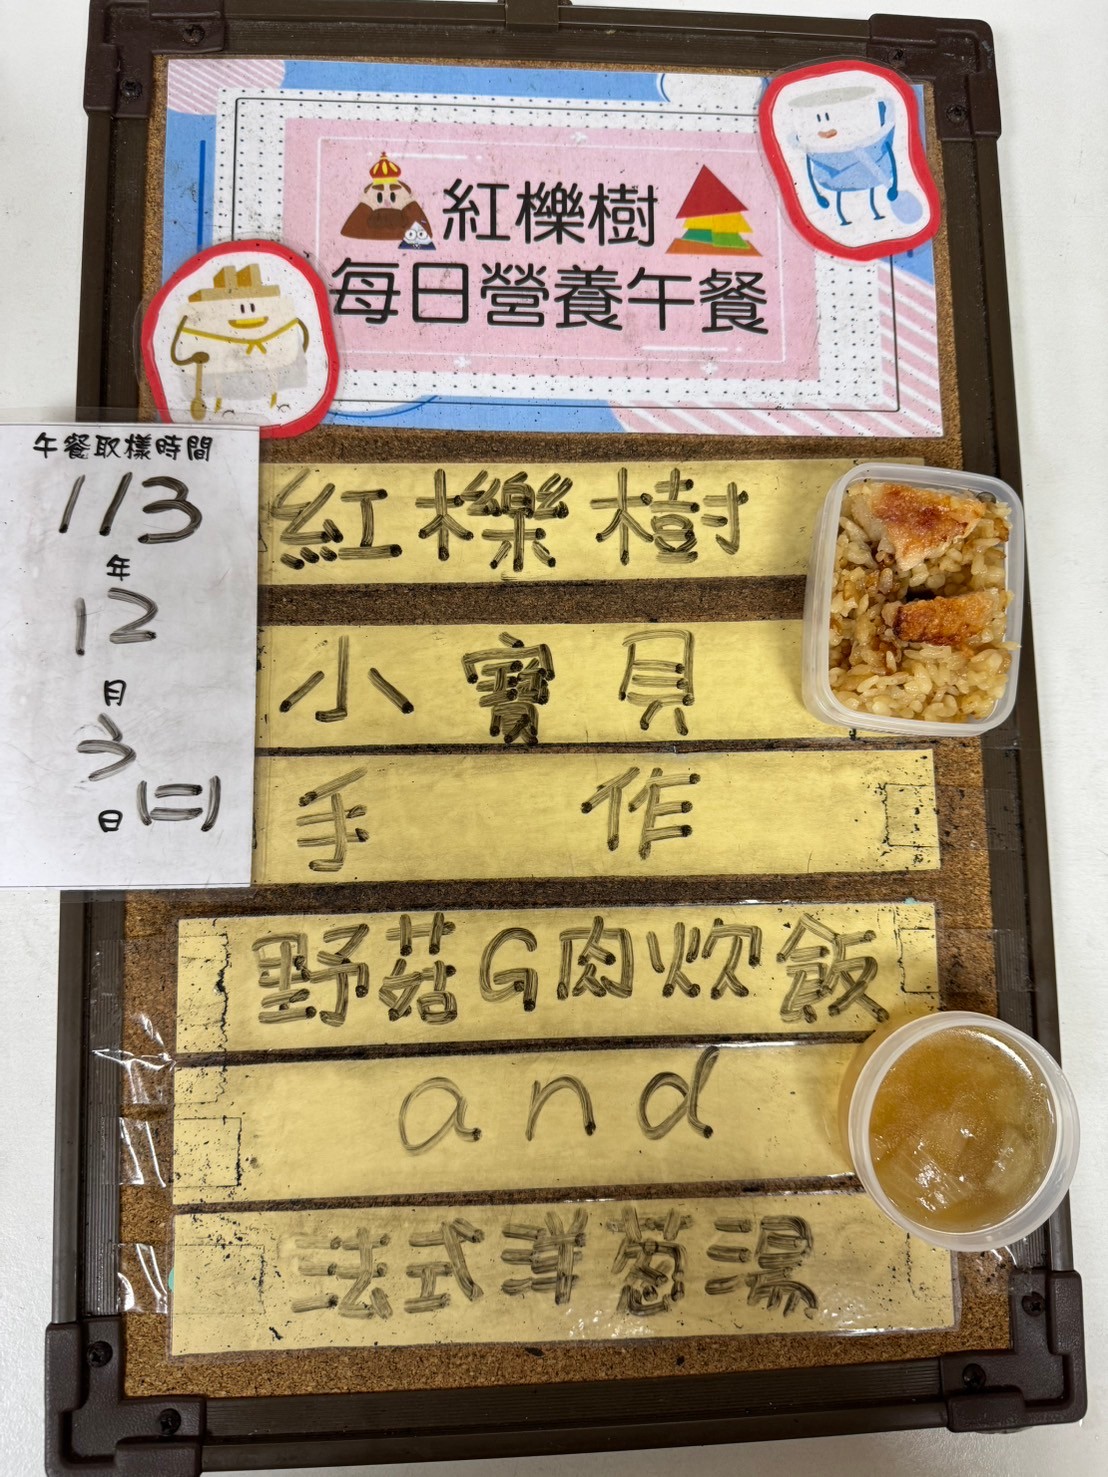 紅櫟樹
每日營養午餐
午餐取樣時間
113
年
12
月
3
日(二)
紅櫟樹
小寶貝
手作
野菇G肉炊飯
and
法式洋蔥湯